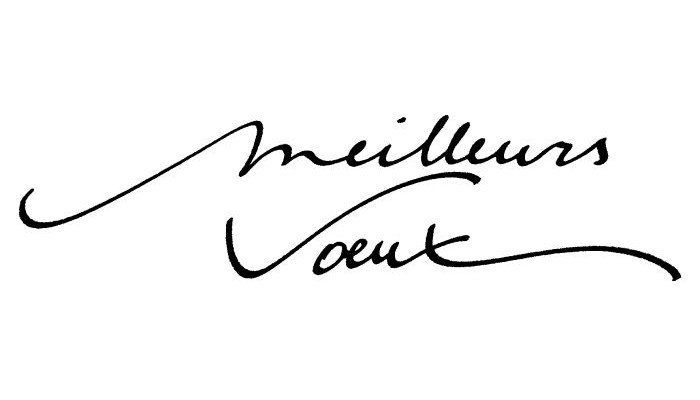 Meilleurs
Vœux